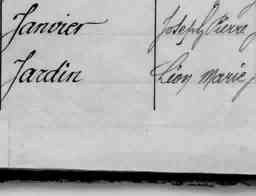 Janvier Joseph Pierre
Jardin Léon Marie